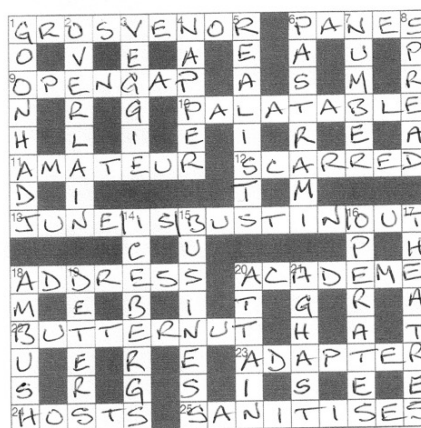 1GR2OS3VE4NO5R 6PA7NE8S
O V E A E A U P
9OPENGAP A S M R
N R G 10PALATABLE
H L I E I R E A
11AMATEUR 12SCARRED
D I T M
13JUNE|14IS|15BUSTIN|16OU17T
C U P H
18AD19DRESS 20AC21ADEME
M E B I T G R A
22BUTTERNUT H A T
U E R E 23ADAPTER
S R G S I S E E
24HOSTS 25SANITISES